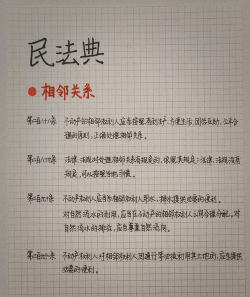 民法典
相邻关系
第二百八十八条 不动产的相邻权利人应当按照有利生产、方便生活、团结互助、公平合
理的原则，正确处理相邻关系。
第二百八十九条 法律、法规对处理相邻关系有规定的，依照其规定；法律、法规没有
规定的，可以按照当地习惯。
第二百九十条 不动产权利人应当为相邻权利人用水、排水提供必要的便利。
对自然流水的利用，应当在不动产的相邻权利人之间合理分配。对
自然流水的排放，应当尊重自然流向。
第二百九十一条 不动产权利人对相邻权利人因通行等必须利用其土地的，应当提供
必要的便利。